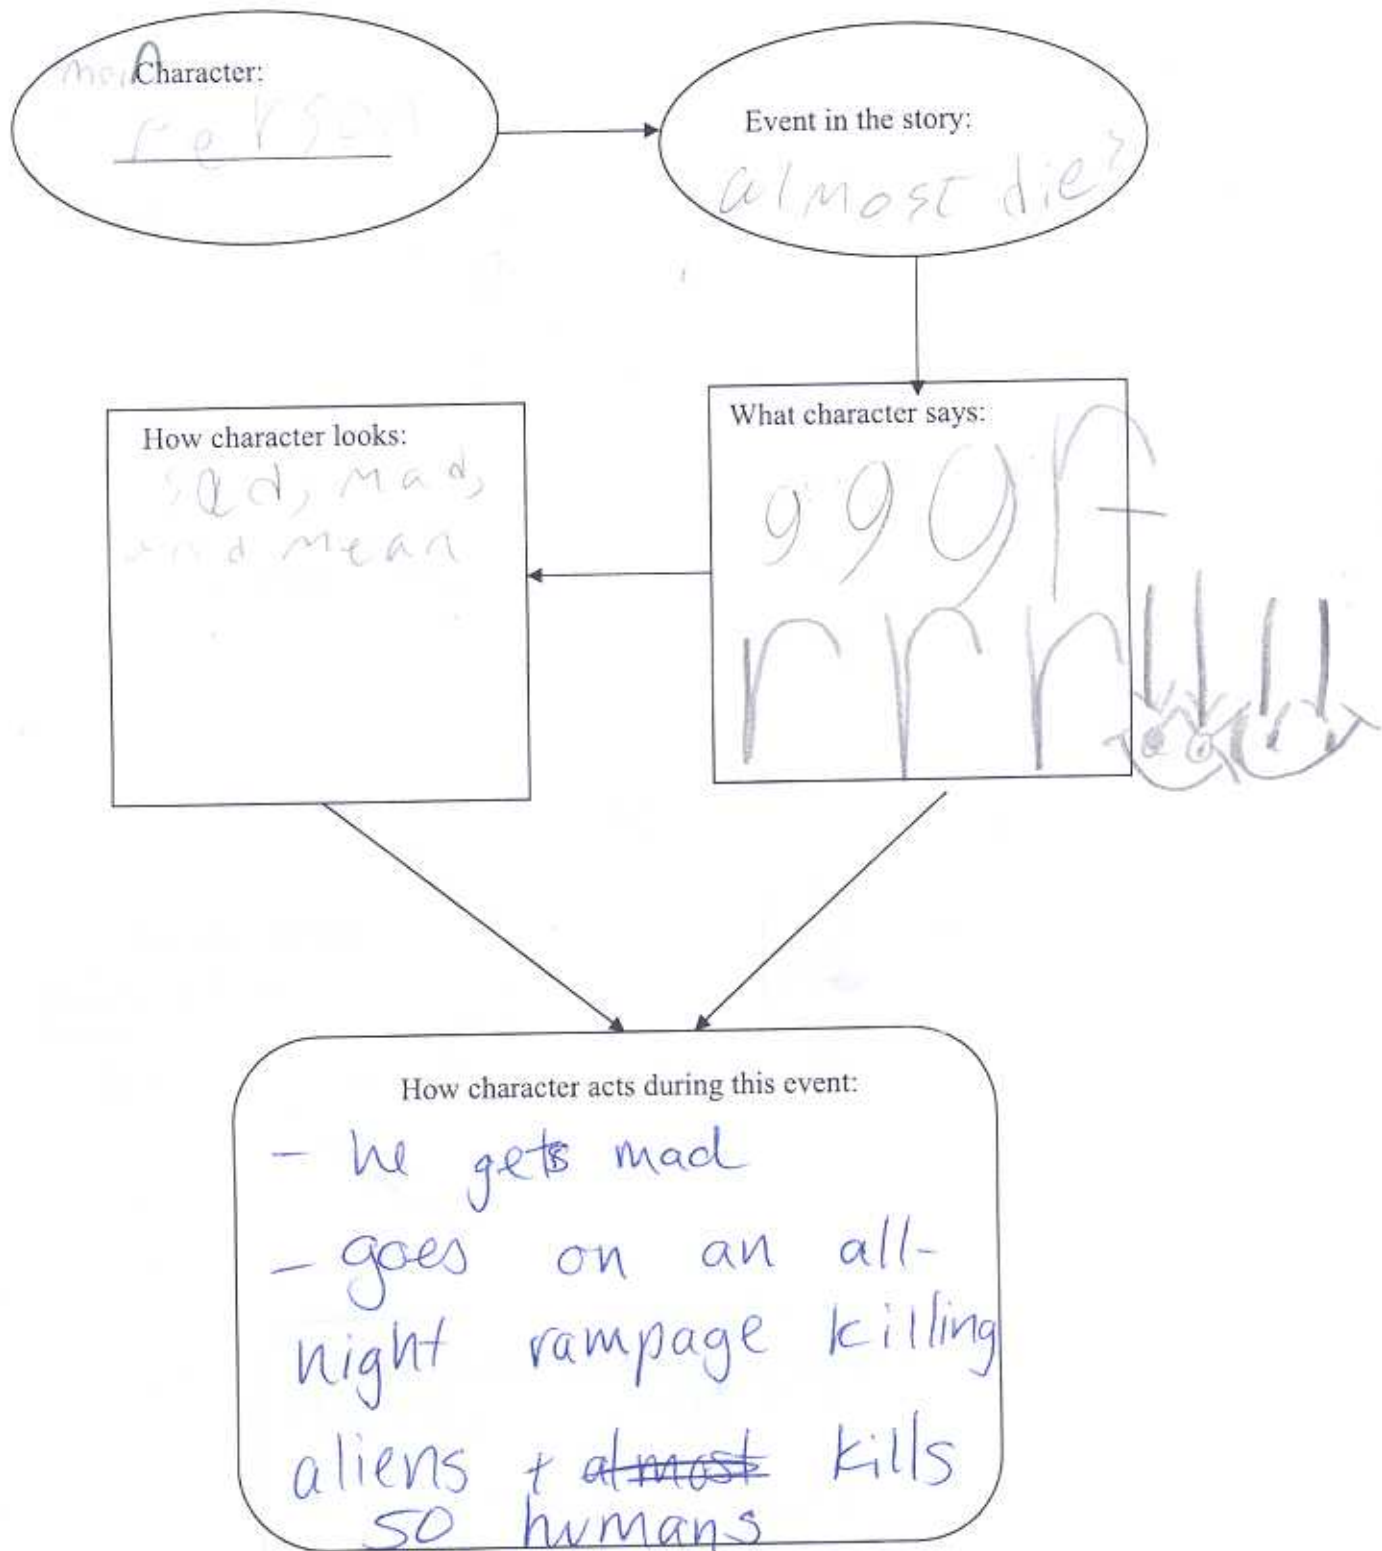 main Character:
Person
Event in the story:
almost die?
How character looks:
sad, mad,
and mean
What character says:
g g g r -
r r r
How character acts during this event:
- he gets mad
- goes on an all-
night rampage killing
aliens + almost kills
50 humans